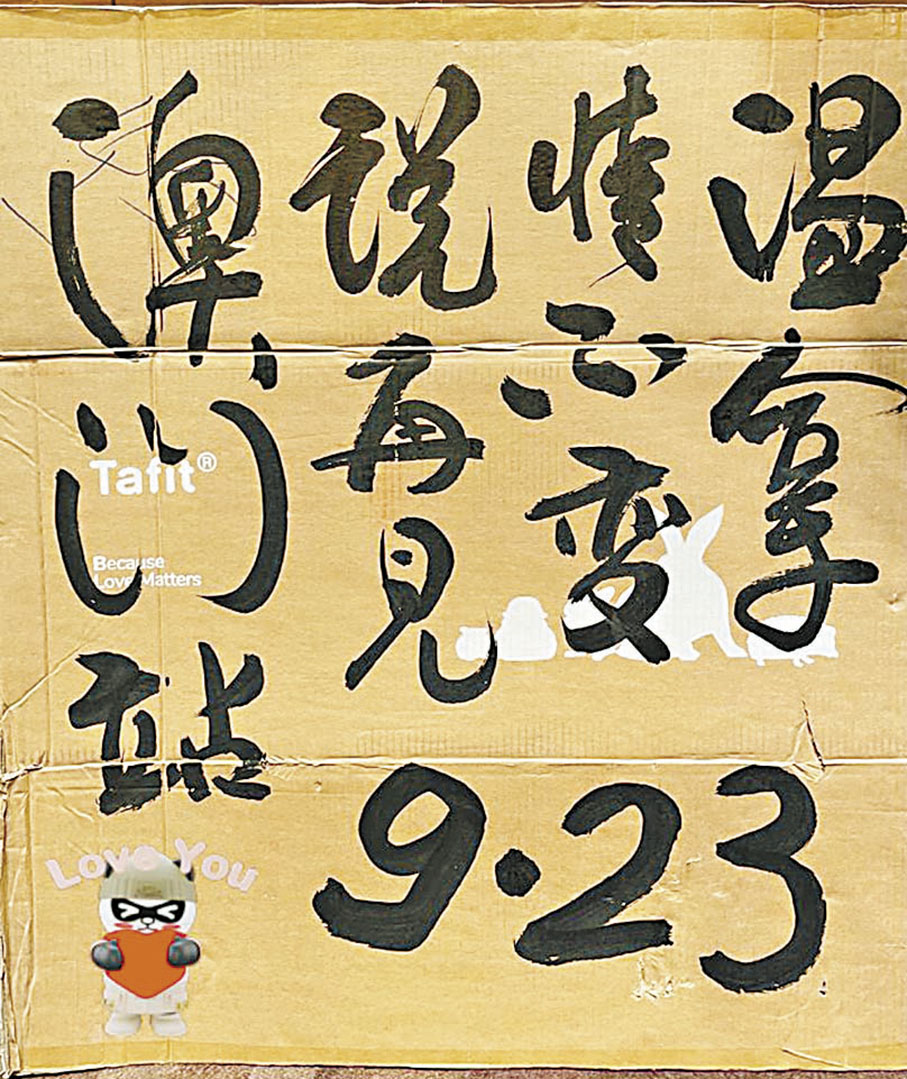 温拿
情不变
说再見
澳门站
9·23
Tafit®
Because
Love Matters
Love You